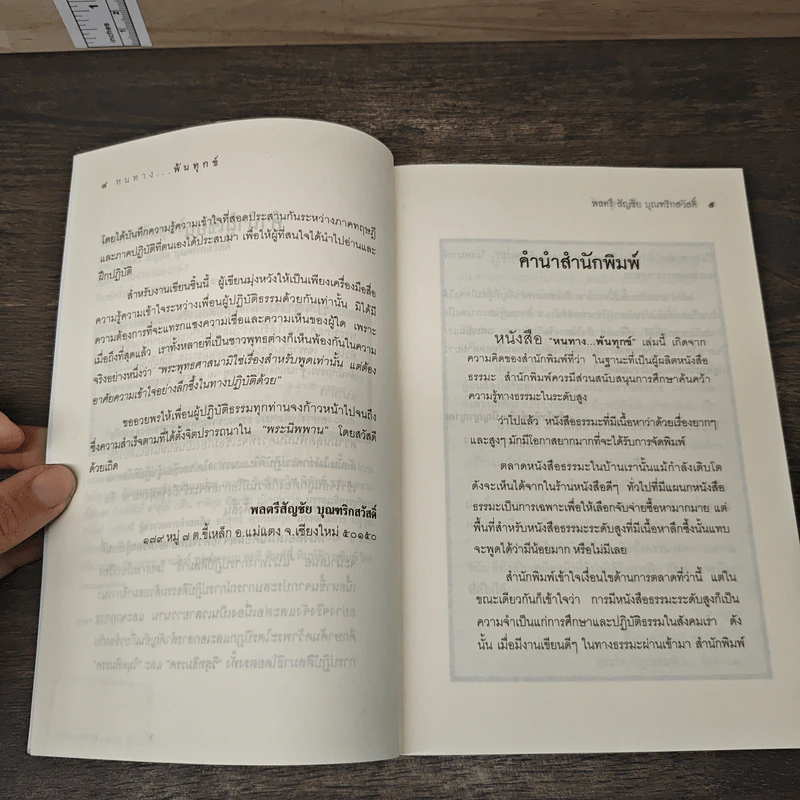 1
2
inches
๔ หนทาง...พ้นทุกข์
โดยได้บันทึกความรู้ความเข้าใจที่สอดประสานกันระหว่างภาคทฤษฎี
และภาคปฏิบัติที่ตนเองได้ประสบมา เพื่อให้ผู้ที่สนใจได้นำไปอ่านและ
ฝึกปฏิบัติ
สำหรับงานเขียนชิ้นนี้ ผู้เขียนมุ่งหวังให้เป็นเพียงเครื่องมือสื่อ
ความรู้ความเข้าใจระหว่างเพื่อนผู้ปฏิบัติธรรมด้วยกันเท่านั้น มิได้มี
ความต้องการที่จะแทรกแซงความเชื่อและความเห็นของผู้ใด เพราะ
เมื่อถึงที่สุดแล้ว เราทั้งหลายที่เป็นชาวพุทธต่างก็เห็นพ้องกันในความ
จริงอย่างหนึ่งว่า "พระพุทธศาสนามิใช่เรื่องสำหรับพูดเท่านั้น แต่ต้อง
อาศัยความเข้าใจอย่างลึกซึ้งในทางปฏิบัติด้วย"
ขออวยพรให้เพื่อนผู้ปฏิบัติธรรมทุกท่านจงก้าวหน้าไปจนถึง
ซึ่งความสำเร็จตามที่ได้ตั้งจิตปรารถนาใน "พระนิพพาน" โดยสวัสดี
ด้วยเถิด
พลตรีสัญชัย บุณฑริกสวัสดิ์
๑๗๙ หมู่ ๗ ต.ขี้เหล็ก อ.แม่แตง จ.เชียงใหม่ ๕๐๑๕๐
พลตรี สัญชัย บุณฑริกสวัสดิ์ ๕
คำนำสำนักพิมพ์
หนังสือ "หนทาง...พ้นทุกข์" เล่มนี้ เกิดจาก
ความคิดของสำนักพิมพ์ที่ว่า ในฐานะที่เป็นผู้ผลิตหนังสือ
ธรรมะ สำนักพิมพ์ควรมีส่วนสนับสนุนการศึกษาค้นคว้า
ความรู้ทางธรรมะในระดับสูง
ว่าไปแล้ว หนังสือธรรมะที่มีเนื้อหาว่าด้วยเรื่องยากๆ
และสูงๆ มักมีโอกาสยากมากที่จะได้รับการจัดพิมพ์
ตลาดหนังสือธรรมะในบ้านเรานั้นแม้กำลังเติบโต
ดังจะเห็นได้จากในร้านหนังสือดีๆ ทั่วไปที่มีแผนกหนังสือ
ธรรมะเป็นการเฉพาะเพื่อให้เลือกจับจ่ายซื้อหามากมาย แต่
พื้นที่สำหรับหนังสือธรรมะระดับสูงที่มีเนื้อหาลึกซึ้งนั้นแทบ
จะพูดได้ว่ามีน้อยมาก หรือไม่มีเลย
สำนักพิมพ์เข้าใจเงื่อนไขด้านการตลาดที่ว่านี้ แต่ใน
ขณะเดียวกันก็เข้าใจว่า การมีหนังสือธรรมะระดับสูงก็เป็น
ความจำเป็นแก่การศึกษาและปฏิบัติธรรมในสังคมเรา ดัง
นั้น เมื่อมีงานเขียนดีๆ ในทางธรรมะผ่านเข้ามา สำนักพิมพ์